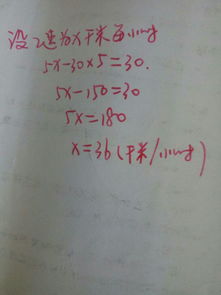 设乙速为x千米每小时
5x-30×5=30.
5x-150=30
5x=180
x=36(千米/小时)